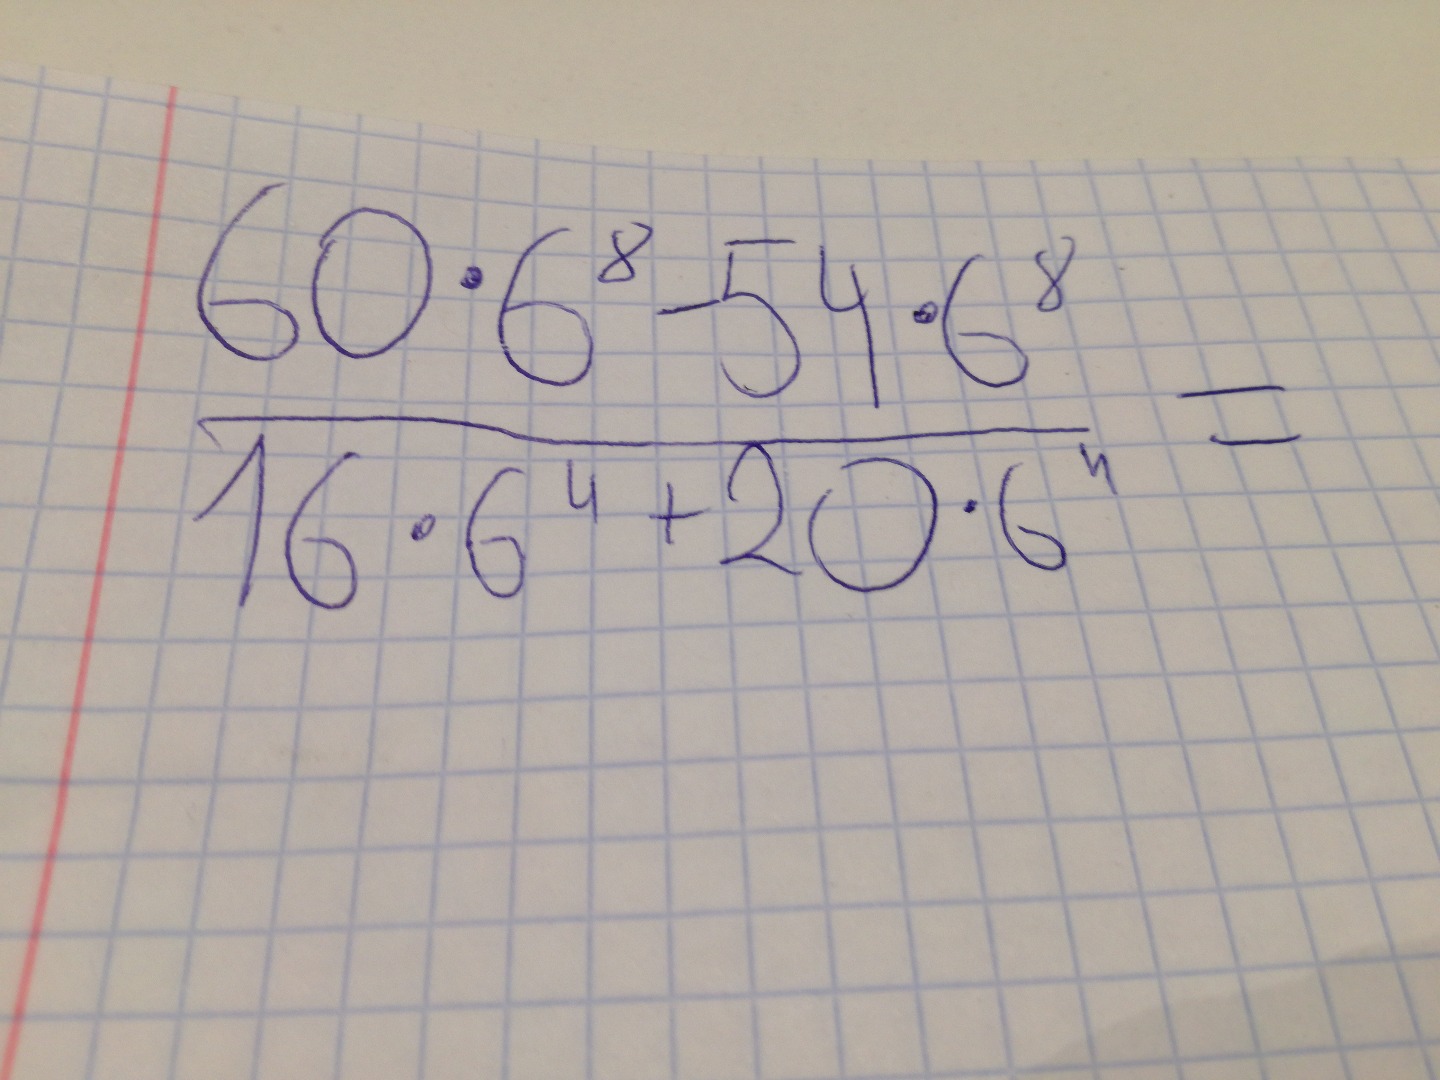 60·6⁸-54·6⁸
=
16·6⁴+20·6⁴